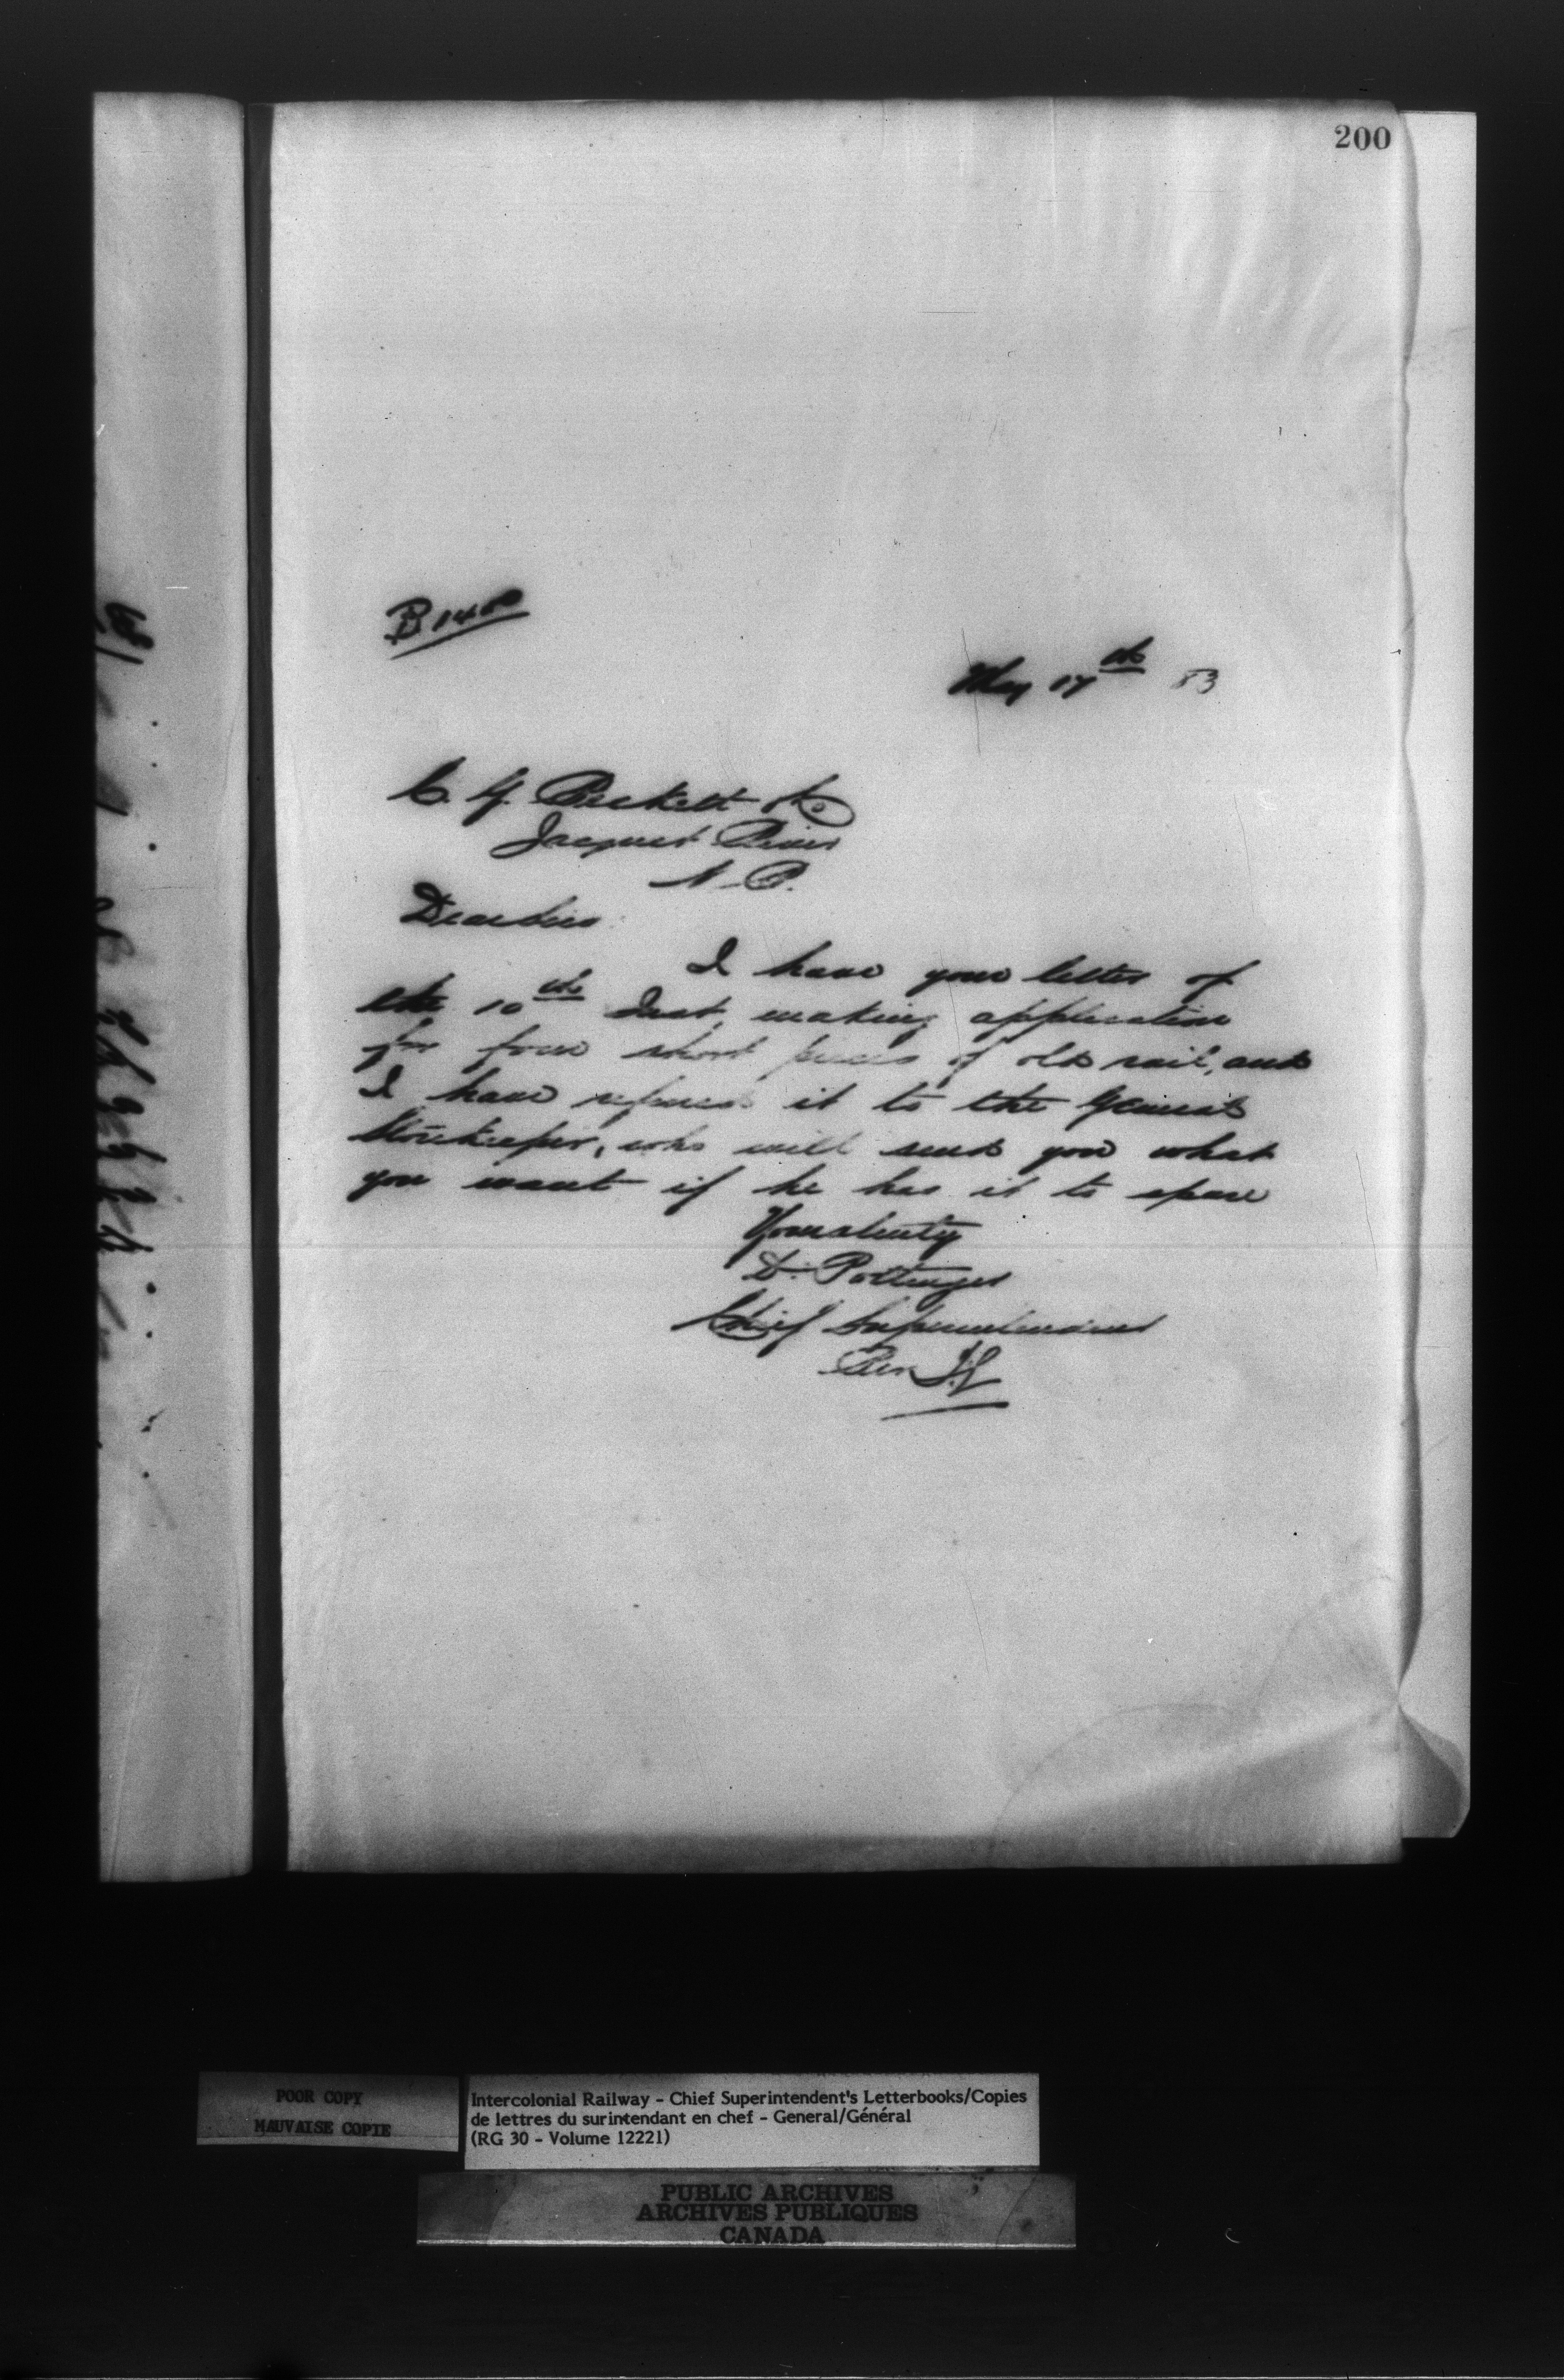 200
May 17th 83
Jacquet River
Dear Sir
I have your letter of
the 10th Inst, making application
for four short pieces of old rail, and
I have referred it to the General
Storekeeper, who will send you what
you want if he has it to spare
Yours truly
D. Pottinger
Chief Superintendent
Per
POOR COPY
MAUVAISE COPIE
Intercolonial Railway - Chief Superintendent's Letterbooks/Copies
de lettres du surintendant en chef - General/Général
(RG 30 - Volume 12221)
PUBLIC ARCHIVES
ARCHIVES PUBLIQUES
CANADA